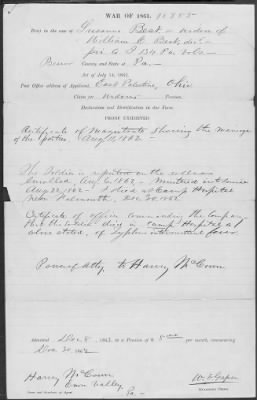 WAR OF 1861.
Brief in the case of Susanna Best widow of
William Best, dec'd
pri Co I 134 Pa Vols
County and State of Pa
Act of July 14, 1862.
Post Office address of Applicant, East Palestine, Ohio
Claim for Widows Pension.
Declaration and Identification in due form.
PROOF EXHIBITED
Certificate of Magistrate showing the marriage
of the parties Aug
The Soldier is reported on the rolls as
Enrolled Aug 6, 1862, Mustered into service
Aug 22, 1862 & died at Camp Hospital
near Falmouth, Dec 20, 1862
Certificate of officer commanding the Company
that the soldier died in Camp Hospital as
above stated, of
fever
Power of atty to Harvey McCown
Admitted Dec 8, 1863, to a Pension of $ 8 per month, commencing
Dec 20, 1862
Harvey McCown
Enon Valley
Pa
Name and Residence of Agent.